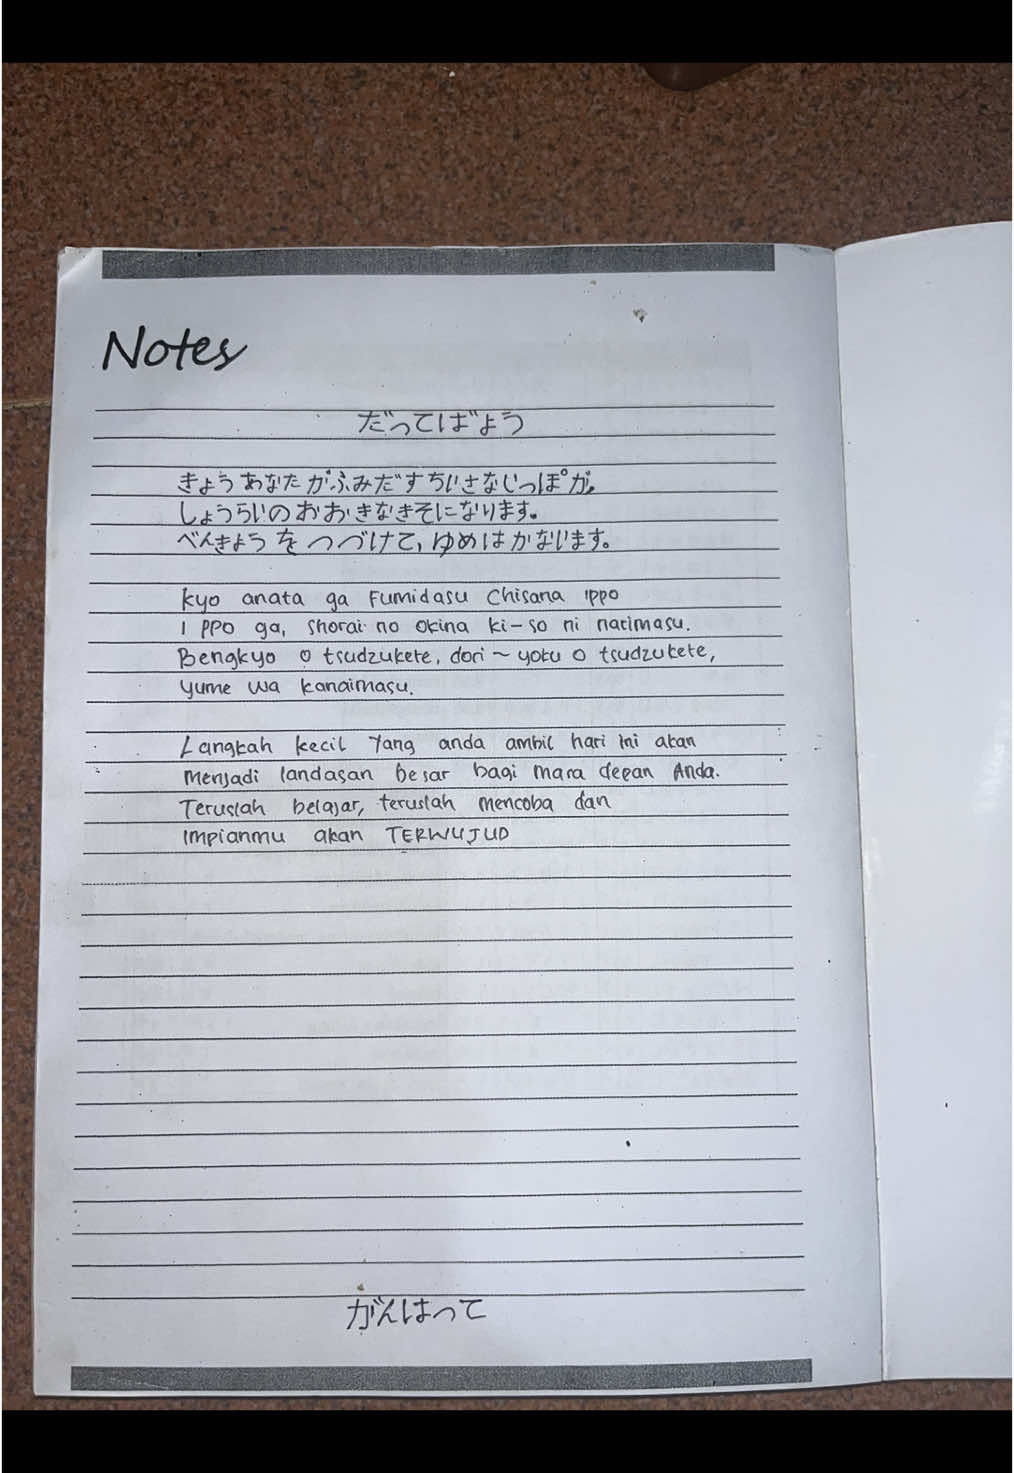 Notes
だってばょう
きょうあなたがふみだすちいさなじっぽが,
しょうらいのおおきなきそになります。
べんきようをつづけて,ゆめはかないます。
kyo anata ga Fumidasu Chisana ippo
i ppo ga, shorai no okina ki-so ni narimasu.
Bengkyo o tsudzukete, dori ~ yoku o tsudzukete,
yume wa kanaimasu.
Langkah kecil Yang anda ambil hari ini akan
menjadi landasan besar bagi masa depan Anda.
Teruslah belajar, teruslah mencoba dan
impianmu akan TERWUJUD
がんはって